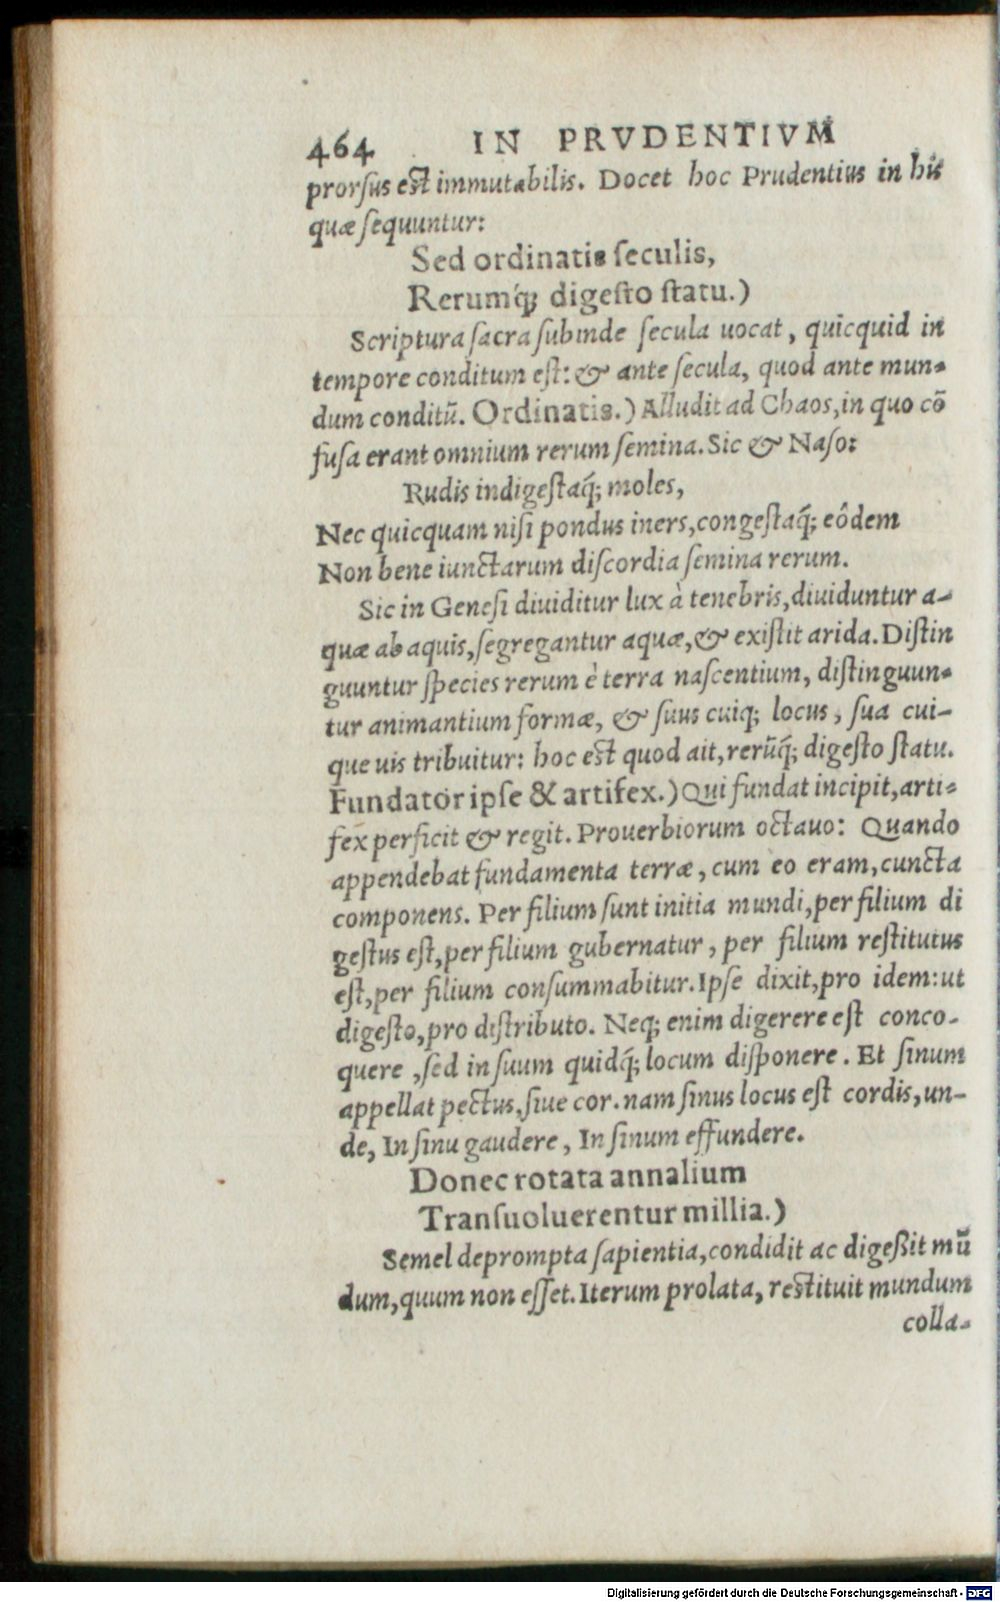 464 IN PRVDENTIVM
prorſus eſt immutabilis. Docet hoc Prudentius in his
quæ ſequuntur:
Sed ordinatis ſeculis,
Rerumq́; digeſto ſtatu.)
Scriptura ſacra ſubinde ſecula uocat, quicquid in
tempore conditum eſt: & ante ſecula, quod ante mun-
dum conditū. Ordinatis.) Alludit ad Chaos, in quo cō
fuſa erant omnium rerum ſemina. Sic & Naſo:
Rudis indigeſtaq́; moles,
Nec quicquam niſi pondus iners, congeſtaq́; eôdem
Non bene iunctarum diſcordia ſemina rerum.
Sic in Geneſi diuiditur lux à tenebris, diuiduntur a-
quæ ab aquis, ſegregantur aquæ, & exiſtit arida. Diſtin
guuntur ſpecies rerum è terra naſcentium, diſtinguun-
tur animantium formæ, & ſuus cuiq; locus, ſua cui-
que uis tribuitur: hoc eſt quod ait, rerūq́; digeſto ſtatu.
Fundator ipſe & artifex.) Qui fundat incipit, arti-
fex perficit & regit. Prouerbiorum octauo: Quando
appendebat fundamenta terræ, cum eo eram, cuncta
componens. Per filium ſunt initia mundi, per filium di
geſtus eſt, per filium gubernatur, per filium reſtitutus
eſt, per filium conſummabitur. Ipſe dixit, pro idem: ut
digeſto, pro diſtributo. Neq; enim digerere eſt conco-
quere, ſed in ſuum quidq́; locum diſponere. Et ſinum
appellat pectus, ſiue cor. nam ſinus locus eſt cordis, un-
de, In ſinu gaudere, In ſinum effundere.
Donec rotata annalium
Tranſuoluerentur millia.)
Semel deprompta ſapientia, condidit ac digeßit mū
dum, quum non eſſet. Iterum prolata, reſtituit mundum
colla-
Digitalisierung gefördert durch die Deutsche Forschungsgemeinschaft - DFG